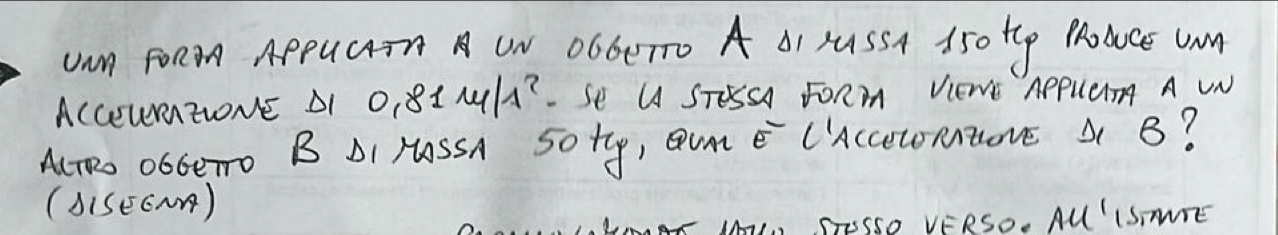 UNA FORZA APPLICATA A UN OGGETTO A DI MASSA 150 Kg PRODUCE UNA
ACCELERAZIONE DI 0,81 m/s². SE LA STESSA FORZA VIENE APPLICATA A UN
ALTRO OGGETTO B DI MASSA 50 Kg, QUAL È L'ACCELERAZIONE DI B?
(DISEGNA)
STESSO VERSO. ALL'ISTANTE